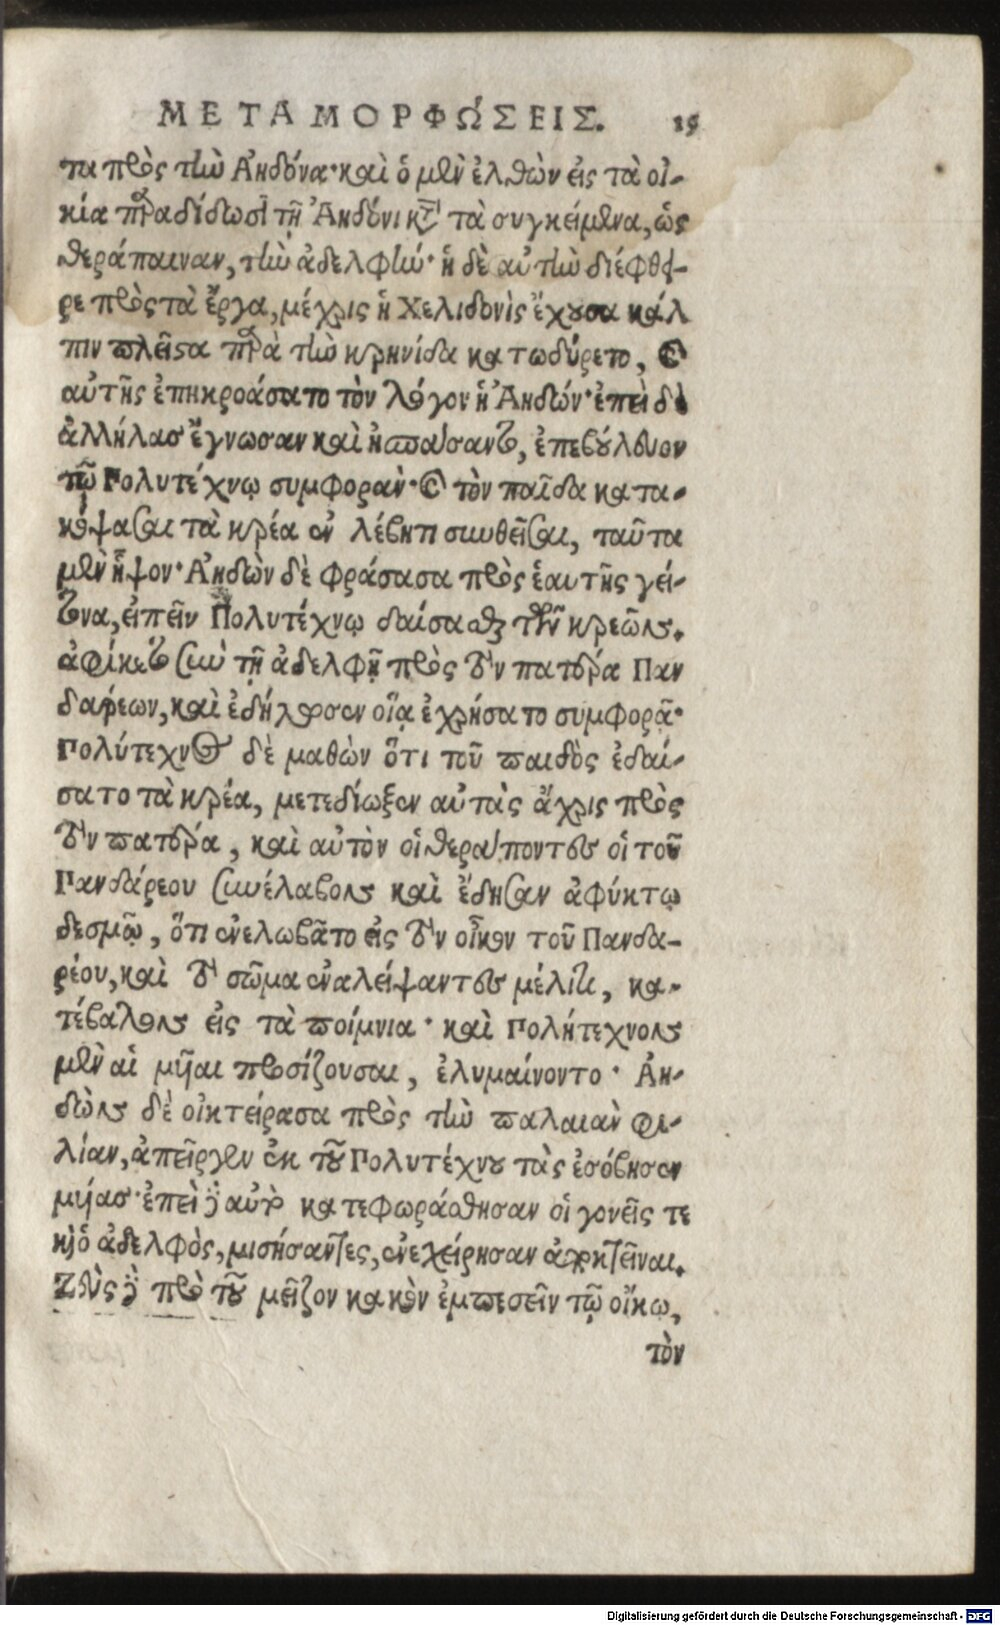 ΜΕΤΑΜΟΡΦΏΣΕΙΣ. 15
τα πρὸς τὴν Ἀηδόνα· καὶ ὁ μὲν ἐλθὼν εἰς τὰ οἰ-
κία παραδίδωσι τῇ Ἀηδόνι κατὰ τὰ συγκείμενα, ὡς
θεράπαιναν, τὴν ἀδελφήν· ἡ δὲ αὐτὴν διέφθει-
ρε πρὸς τὰ ἔργα, μέχρις ἡ Χελιδονὶς ἔχουσα κάλ
πιν πλεῖστα παρὰ τὴν κρηνίδα κατωδύρετο, καὶ
αὐτῆς ἐπηκροάσατο τὸν λόγον ἡ Ἀηδών· ἐπεὶ δὲ
ἀλλήλας ἔγνωσαν καὶ ἠσπάσαντο, ἐπεβούλευον
τῷ Πολυτέχνῳ συμφοράν· καὶ τὸν παῖδα κατα-
κόψασαι τὰ κρέα ἐν λέβητι συνθεῖσαι, ταῦτα
μὲν ἧψον· Ἀηδὼν δὲ φράσασα πρὸς ἑαυτῆς γεί-
τονα, εἰπεῖν Πολυτέχνῳ δαίσασθαι τῶν κρεῶν.
ἀφίκετο σὺν τῇ ἀδελφῇ πρὸς τὸν πατέρα Παν
δάρεων, καὶ ἐδήλωσεν οἵᾳ ἐχρήσατο συμφορᾷ·
Πολύτεχνος δὲ μαθὼν ὅτι τοῦ παιδὸς ἐδαί-
σατο τὰ κρέα, μετεδίωξεν αὐτὰς ἄχρις πρὸς
τὸν πατέρα, καὶ αὐτὸν οἱ θεράποντες οἱ τοῦ
Πανδάρεου συνέλαβον καὶ ἔδησαν ἀφύκτῳ
δεσμῷ, ὅτι ἐνελωβᾶτο εἰς τὸν οἶκον τοῦ Πανδα-
ρέου, καὶ τὸ σῶμα ἐναλείψαντες μέλιτι, κα-
τέβαλον εἰς τὰ ποίμνια· καὶ Πολήτεχνον
μὲν αἱ μῆαι προσίζουσαι, ἐλυμαίνοντο· Ἀη-
δὼν δὲ οἰκτείρασα πρὸς τὴν παλαιὰν φι-
λίαν, ἀπεῖργεν ἐκ τοῦ Πολυτέχνου τὰς ἐσόβησεν
μήας· ἐπεὶ δὲ αὐτὴν κατεφωράθησαν οἱ γονεῖς τε
καὶ ὁ ἀδελφὸς, μισήσαντες, ἐνεχείρησαν ἀποκτεῖναι.
Ζεὺς δὲ πρὸ τοῦ μεῖζον κακὸν ἐμπεσεῖν τῷ οἴκῳ,
τὸν
Digitalisierung gefördert durch die Deutsche Forschungsgemeinschaft - DFG